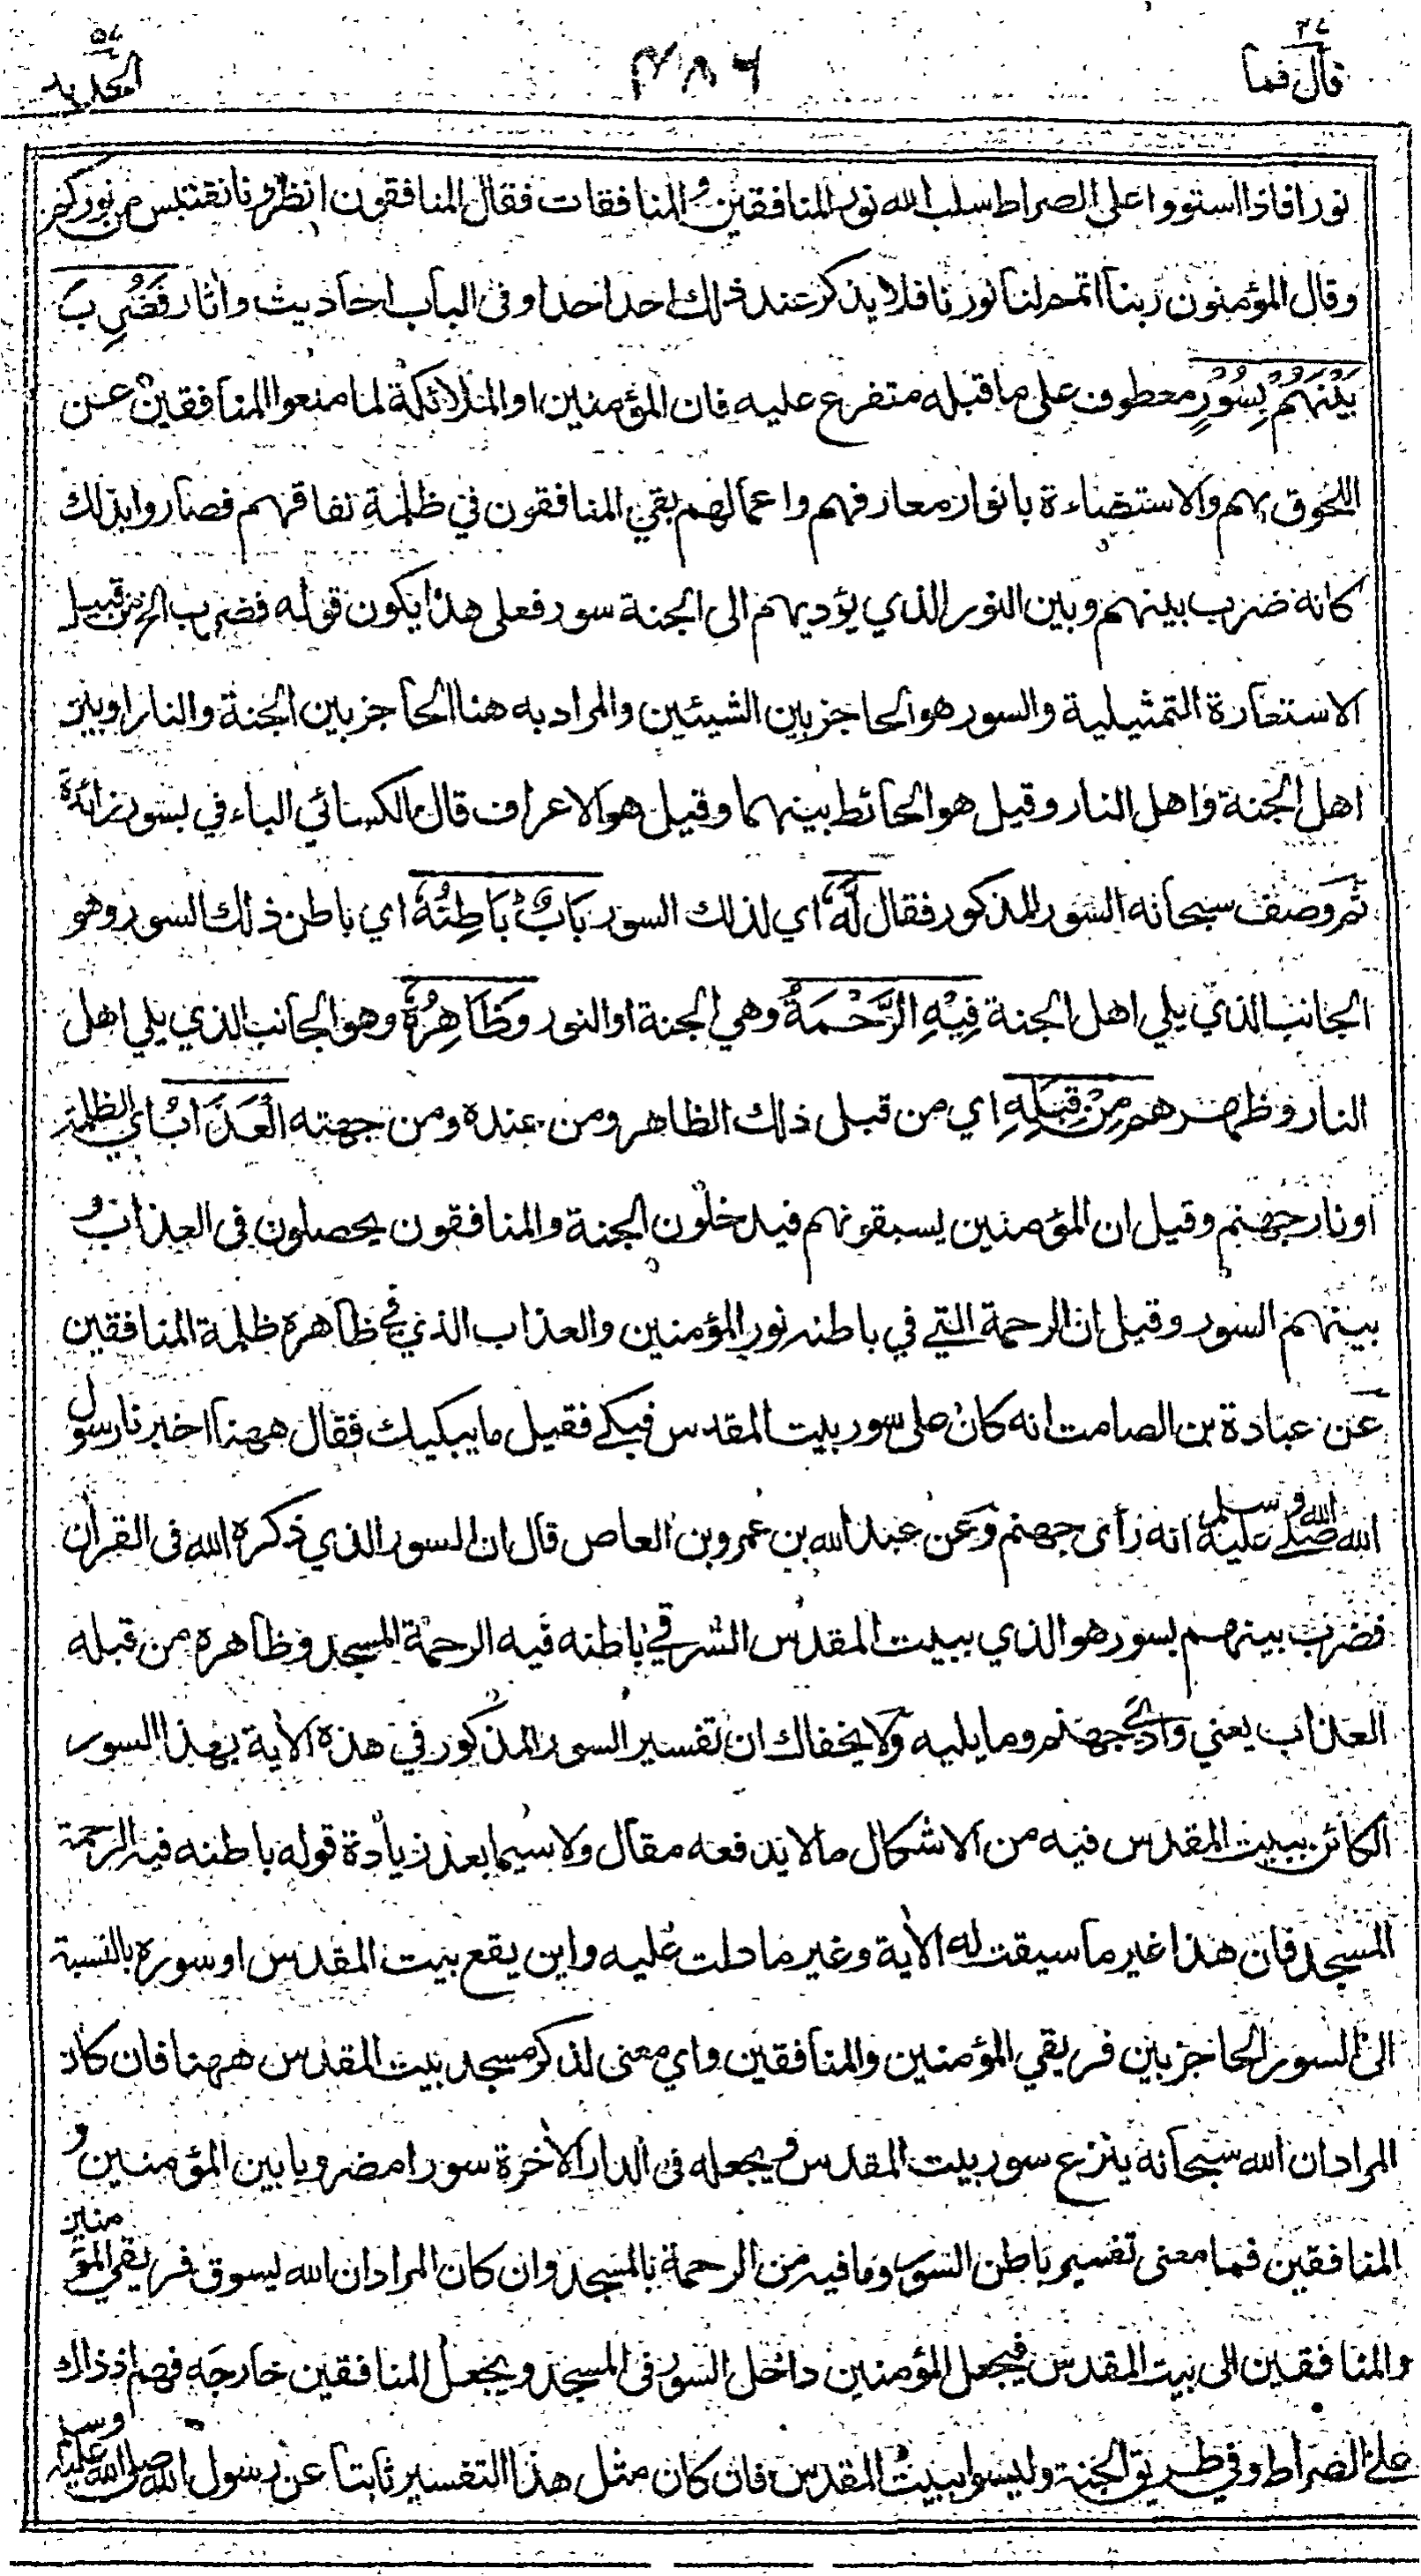 قال فما ٢٧
٢٨٦
الحديد ٥٧
نورا فاذا استووا على الصراط سلب الله نور المنافقين والمنافقات فقال المنافقون انظرونا نقتبس من نوركم
وقال المؤمنون ربنا اتمم لنا نورنا فلا يذكر عند ذلك احد احدا وفى الباب احاديث واثار فَضُرِبَ
بَيْنَهُمْ بِسُوْرٍ معطوف على ما قبله متفرع عليه فان المؤمنين او الملائكة لما منعوا المنافقين عن
اللحوق بهم والاستضاءة بانوار معارفهم واعمالهم بقي المنافقون في ظلمة نفاقهم فصاروا بذلك
كانه ضرب بينهم وبين النور الذي يؤديهم الى الجنة سور فعلى هذا يكون قوله فضرب الخ من قبيل
الاستعارة التمثيلية والسور هو الحاجز بين الشيئين والمراد به هنا الحاجز بين الجنة والنار او بين
اهل الجنة واهل النار وقيل هو الحائط بينهما وقيل هو الاعراف قال الكسائي الباء في بسور زائدة
ثم وصف سبحانه السور المذكور فقال لَّهٗ اي لذلك السور بَابٌ بَاطِنُهٗ اي باطن ذلك السور وهو
الجانب الذي يلي اهل الجنة فِيْهِ الرَّحْمَةُ وهي الجنة او النور وَظَاهِرُهٗ وهو الجانب الذي يلي اهل
النار وظهر هم مِنْ قِبَلِهِ اي من قبل ذلك الظاهر ومن عنده ومن جهته الْعَذَابُ اي الظلمة
او نار جهنم وقيل ان المؤمنين يسبقونهم فيدخلون الجنة والمنافقون يحصلون في العذاب و
بينهم السور وقيل ان الرحمة التي في باطنه نور المؤمنين والعذاب الذي في ظاهره ظلمة المنافقين
عن عبادة بن الصامت انه كان على سور بيت المقدس فبكى فقيل ما يبكيك فقال ههنا اخبرنا رسول
الله صلى الله عليه وسلم انه رأى جهنم وعن عبد الله بن عمرو بن العاص قال ان السور الذي ذكره الله فى القران
فضرب بينهم بسور هو الذي ببيت المقدس الشرقي باطنه فيه الرحمة المسجد وظاهره من قبله
العذاب يعني وادي جهنم وما يليه ولا يخفاك ان تفسير السور المذكور في هذه الاية بهذا السور
الكائن ببيت المقدس فيه من الاشكال ما لا يدفعه مقال ولا سيما بعد زيادة قوله باطنه فيه الرحمة
المسجد فان هذا غير ما سيقت له الاية وغير ما دلت عليه واين يقع بيت المقدس او سوره بالنسبة
الى السور الحاجز بين فريقي المؤمنين والمنافقين واي معنى لذكر مسجد بيت المقدس ههنا فان كان
المراد ان الله سبحانه ينزع سور بيت المقدس ويجعله فى الدار الاخرة سورا مضروبا بين المؤمنين و
المنافقين فما معنى تفسير باطن السور وما فيه من الرحمة بالمسجد وان كان المراد ان الله يسوق فريقي المؤمنين
والمنافقين الى بيت المقدس فيجعل المؤمنين داخل السور فى المسجد ويجعل المنافقين خارجه فهم اذ ذاك
على الصراط وفي طريق الجنة وليسوا ببيت المقدس فان كان مثل هذا التفسير ثابتا عن رسول الله صلى الله عليه وسلم